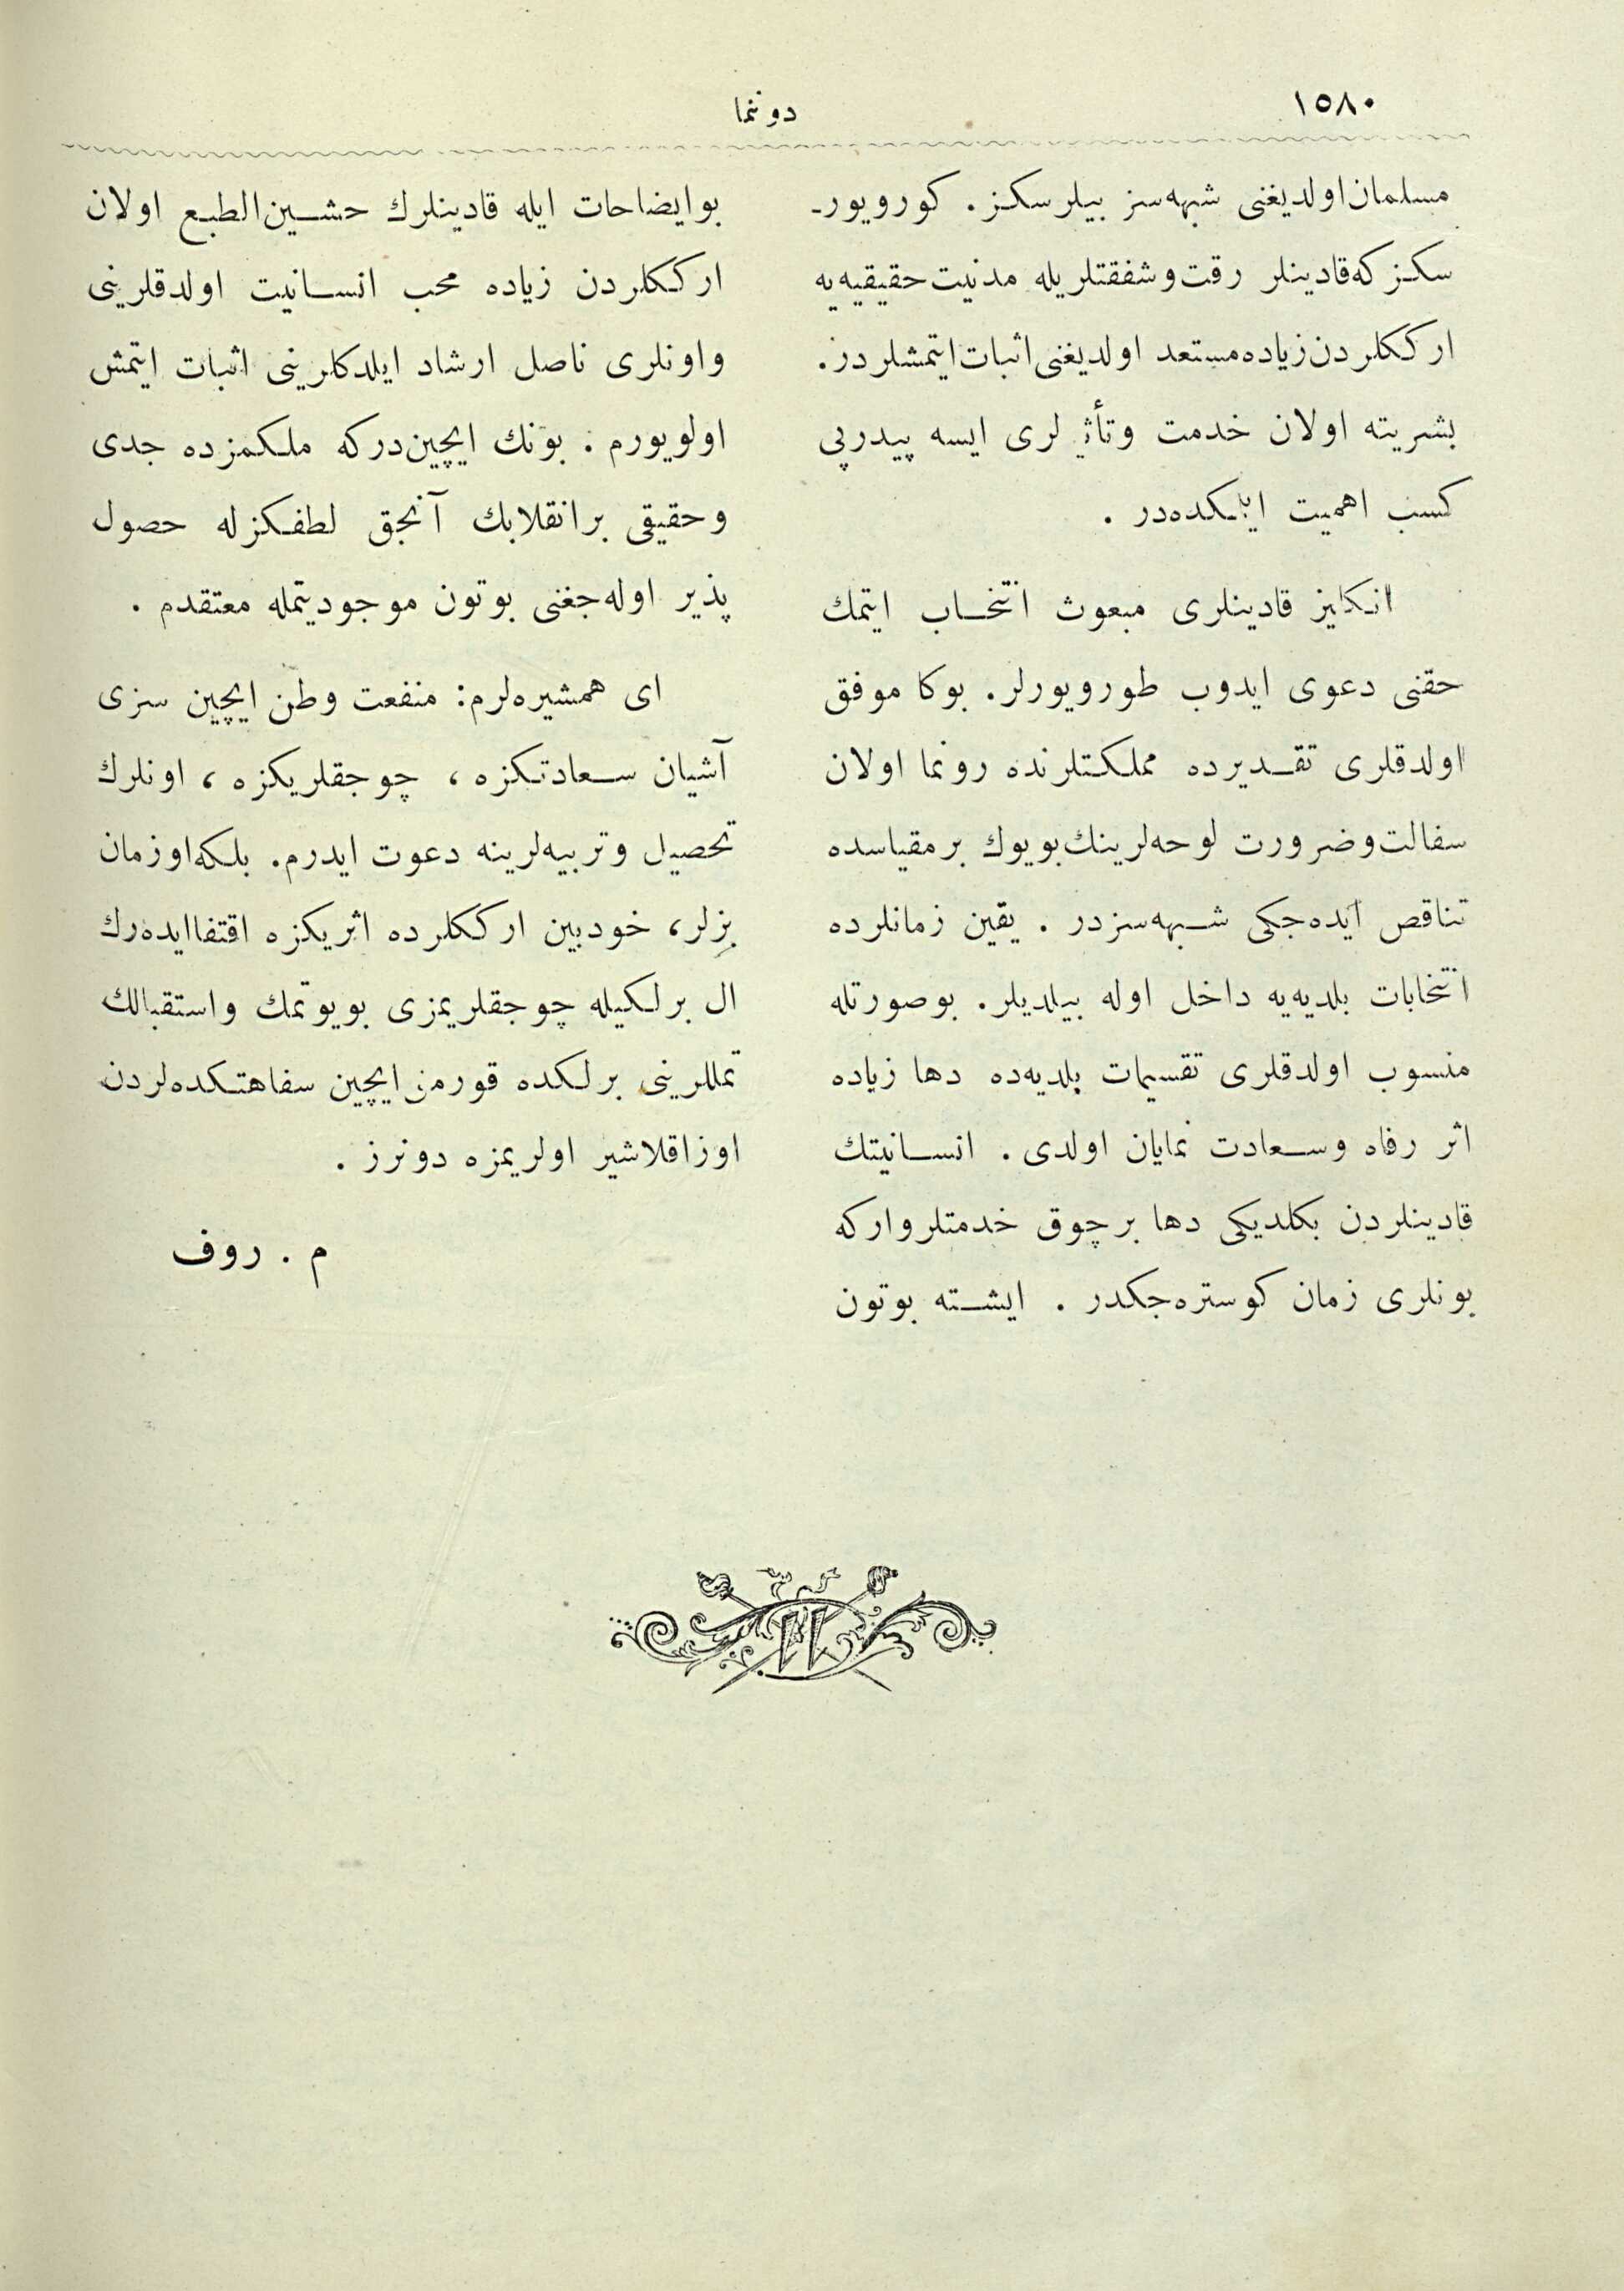 ١٥٨٠
دوننما
مسلمان اولديغنى شبهه‌سز بيلرسكز . كورويور-
سكز كه قادينلر رقت و شفقتلريله مدنيت حقيقيه‌يه
ارككلردن زياده مستعد اولديغنى اثبات ايتمشلردر .
بشريته اولان خدمت وتأثيرلرى ايسه پيدرپى
كسب اهميت ايتمكده‌در .
انكليز قادينلرى مبعوث انتخاب ايتمك
حقنى دعوى ايدوب طورويورلر . بوكا موفق
اولدقلرى تقديرده مملكتلرنده رونما اولان
سفالت وضرورت لوحه‌لرينك بويوك برمقياسده
تناقص ايده‌جكى شبهه‌سزدر . يقين زمانلرده
انتخابات بلديه‌يه داخل اوله بيلديلر . بوصورتله
منسوب اولدقلرى تقسيمات بلديه‌ده دها زياده
اثر رفاه وسعادت نمايان اولدى . انسانيتك
قادينلردن بكلديكى دها برچوق خدمتلر واركه
بونلرى زمان كوستره‌جكدر . ايشته بوتون
بو ايضاحات ايله قادينلرك حشين الطبع اولان
ارككلردن زياده محب انسانيت اولدقلرينى
واونلرى ناصل ارشاد ايلدكلرينى اثبات ايتمش
اولويورم . بونك ايچين‌دركه ملكمزده جدى
وحقيقى برانقلابك آنجق لطفكزله حصول
پذير اوله‌جغنى بوتون موجوديتمله معتقدم .
اى همشيره‌لرم : منفعت وطن ايچين سزى
آشيان سعادتكزه ، چوجقلريكزه ، اونلرك
تحصيل وتربيه‌لرينه دعوت ايدرم . بلكه اوزمان
بزلر ، خودبين ارككلرده اثريكزه اقتفا ايده‌رك
ال برلكيله چوجقلريمزى بويوتمك واستقبالك
تمللرينى برلكده قورمق ايچين سفاهتكده‌لردن
اوزاقلاشير اولريمزه دونرز .
م . روف